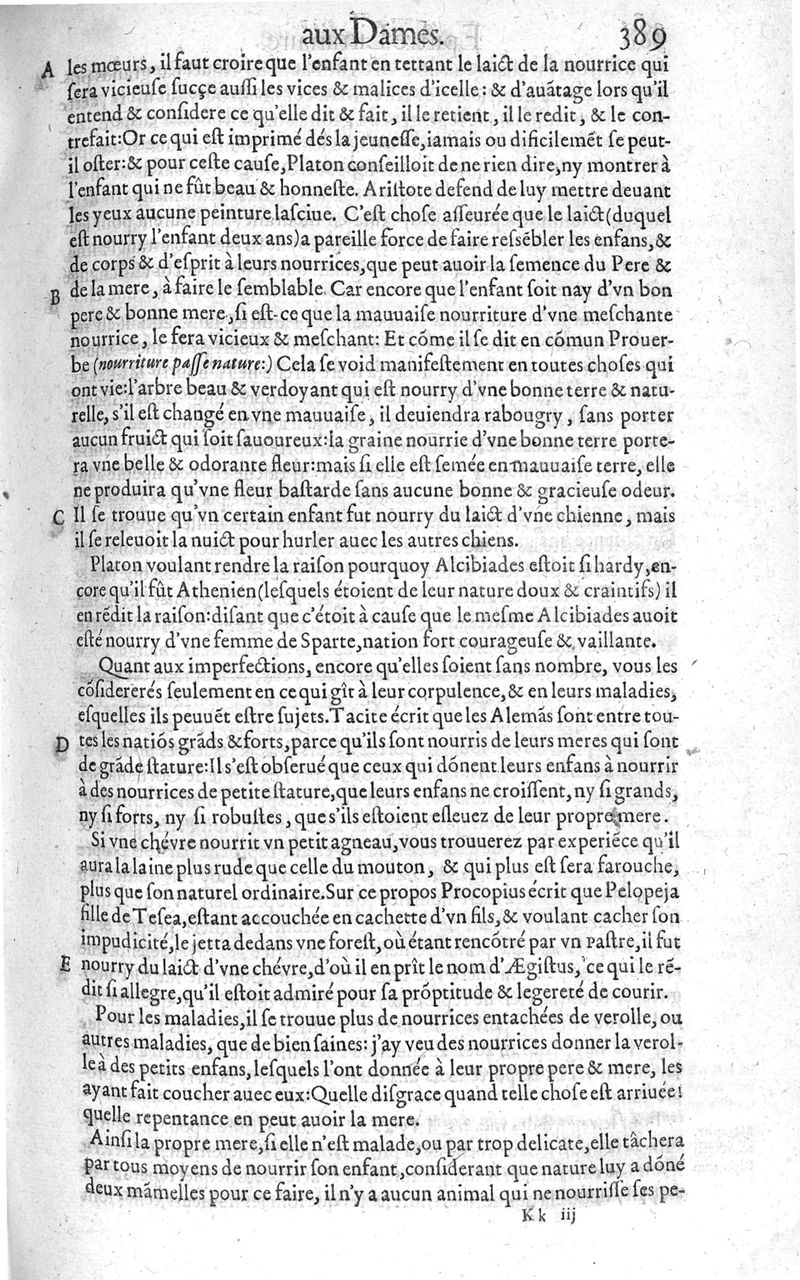 aux Dames. 389
A les mœurs, il faut croire que l'enfant en tettant le laict de la nourrice qui
ſera vicieuſe ſucçe auſſi les vices & malices d'icelle: & d'auãtage lors qu'il
entend & conſidere ce qu'elle dit & fait, il le retient, il le redit, & le con-
trefait: Or ce qui eſt imprimé dés la jeuneſſe, iamais ou dificilemẽt ſe peut-
il oſter: & pour ceſte cauſe, Platon conſeilloit de ne rien dire, ny montrer à
l'enfant qui ne fût beau & honneſte. Ariſtote defend de luy mettre deuant
les yeux aucune peinture laſciue. C'eſt choſe aſſeurée que le laict (duquel
eſt nourry l'enfant deux ans) a pareille force de faire reſsẽbler les enfans, &
de corps & d'eſprit à leurs nourrices, que peut auoir la ſemence du Pere &
B de la mere, à faire le ſemblable. Car encore que l'enfant ſoit nay d'vn bon
pere & bonne mere, ſi eſt-ce que la mauuaiſe nourriture d'vne meſchante
nourrice, le fera vicieux & meſchant: Et cõme il ſe dit en cõmun Prouer-
be (nourriture paſſe nature:) Cela ſe void manifeſtement en toutes choſes qui
ont vie: l'arbre beau & verdoyant qui eſt nourry d'vne bonne terre & natu-
relle, s'il eſt changé en vne mauuaiſe, il deuiendra rabougry, ſans porter
aucun fruict qui ſoit ſauoureux: la graine nourrie d'vne bonne terre porte-
ra vne belle & odorante fleur: mais ſi elle eſt ſemée en mauuaiſe terre, elle
ne produira qu'vne fleur baſtarde ſans aucune bonne & gracieuſe odeur.
C Il ſe trouue qu'vn certain enfant fut nourry du laict d'vne chienne, mais
il ſe releuoit la nuict pour hurler auec les autres chiens.
Platon voulant rendre la raiſon pourquoy Alcibiades eſtoit ſi hardy, en-
core qu'il fût Athenien (leſquels étoient de leur nature doux & craintifs) il
en rẽdit la raiſon: diſant que c'étoit à cauſe que le meſme Alcibiades auoit
eſté nourry d'vne femme de Sparte, nation fort courageuſe & vaillante.
Quant aux imperfections, encore qu'elles ſoient ſans nombre, vous les
cõſidererés ſeulement en ce qui gît à leur corpulence, & en leurs maladies,
eſquelles ils peuuẽt eſtre ſujets. Tacite écrit que les Alemãs ſont entre tou-
D tes les natiõs grãds & forts, parce qu'ils ſont nourris de leurs meres qui ſont
de grãde ſtature: Il s'eſt obſerué que ceux qui dõnent leurs enfans à nourrir
à des nourrices de petite ſtature, que leurs enfans ne croiſſent, ny ſi grands,
ny ſi forts, ny ſi robuſtes, que s'ils eſtoient eſleuez de leur propre mere.
Si vne chévre nourrit vn petit agneau, vous trouuerez par experiẽce qu'il
aura la laine plus rude que celle du mouton, & qui plus eſt ſera farouche,
plus que ſon naturel ordinaire. Sur ce propos Procopius écrit que Pelopeja
fille de Teſea, eſtant accouchée en cachette d'vn fils, & voulant cacher ſon
impudicité, le jetta dedans vne foreſt, où étant rencõtré par vn Paſtre, il fut
E nourry du laict d'vne chévre, d'où il en prît le nom d'Ægiſtus, ce qui le rẽ-
dit ſi allegre, qu'il eſtoit admiré pour ſa prõptitude & legereté de courir.
Pour les maladies, il ſe trouue plus de nourrices entachées de verolle, ou
autres maladies, que de bien ſaines: j'ay veu des nourrices donner la verol-
le à des petits enfans, leſquels l'ont donnée à leur propre pere & mere, les
ayant fait coucher auec eux: Quelle diſgrace quand telle choſe eſt arriuée!
quelle repentance en peut auoir la mere.
Ainſi la propre mere, ſi elle n'eſt malade, ou par trop delicate, elle tâchera
par tous moyens de nourrir ſon enfant, conſiderant que nature luy a dõné
deux mãmelles pour ce faire, il n'y a aucun animal qui ne nourriſſe ſes pe-
Kk iij